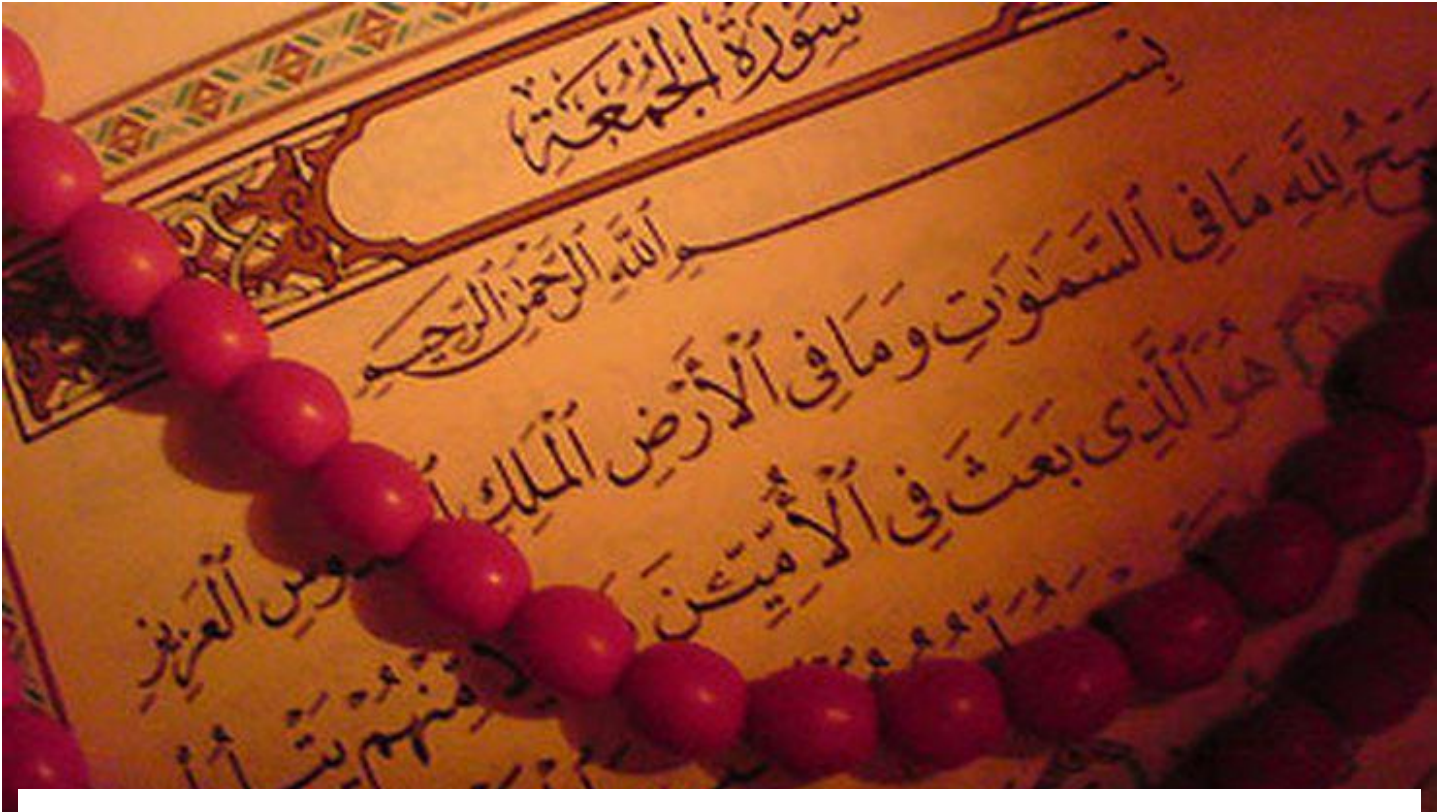 سُورَةُ الْجُمُعَةِ
بِسْمِ اللَّهِ الرَّحْمَٰنِ الرَّحِيمِ
يُسَبِّحُ لِلَّهِ مَا فِي ٱلسَّمَٰوَٰتِ وَمَا فِي ٱلْأَرْضِ ٱلْمَلِكِ
ٱلْعَزِيزِ
هُوَ ٱلَّذِى بَعَثَ فِى ٱلْأُمِّيِّـۧنَ
مِّنْهُمْ